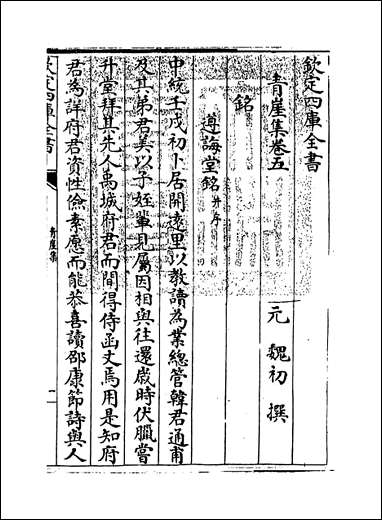 欽定四庫全書
青崖集卷五
元 魏初 撰
銘
遵誨堂銘并序
中統壬戌初卜居開遠里以教讀為業總管韓君通甫
及其弟君美以子姪輩見屬因相與往還歳時伏臘嘗
升堂拜其先人禹城府君而間得侍函丈焉用是知府
君為詳府君資性儉素愿而能恭喜讀邵康節詩與人
欽定四庫全書
青崖集